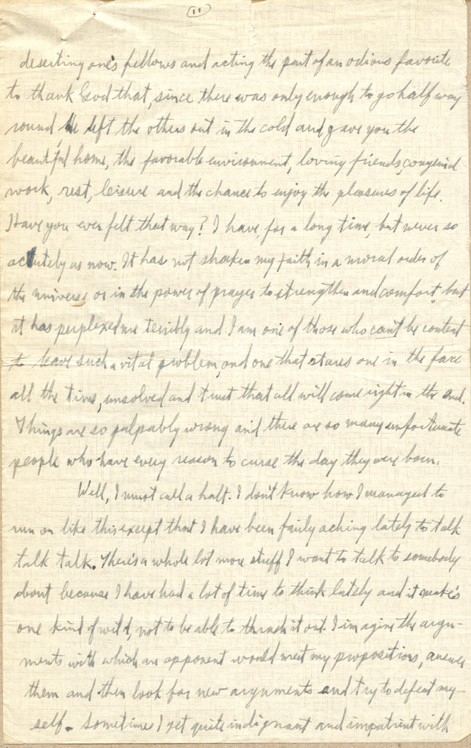 11
deserting one's fellows and acting the part of an odious favorite
to thank God that, since there was only enough to go half way
round He left the others out in the cold and gave you the
beautiful home, the favorable environment, loving friends, congenial
work, rest, leisure and the chance to enjoy the pleasures of life.
Have you ever felt that way? I have, for a long time, but never so
acutely as now. It has not shaken my faith in a moral order of
the universe or in the power of prayer to strengthen and comfort, but
it has perplexed me terribly and I am one of those who can't be content
to leave such a vital problem, and one that stares one in the face
all the time, unsolved and trust that all will come right in the end.
Things are so palpably wrong and there are so many unfortunate
people who have every reason to curse the day they were born.
Well, I must call a halt. I don't know how I managed to
run on like this except that I have been fairly aching lately to talk
talk talk. There's a whole lot more stuff I want to talk to somebody
about because I have had a lot of time to think lately and it makes
one kind of wild, not to be able to thrash it out. I imagine the argu-
ments with which an opponent would meet my propositions, answer
them and then look for new arguments and try to defeat my-
self. Sometimes I get quite indignant and impatient with